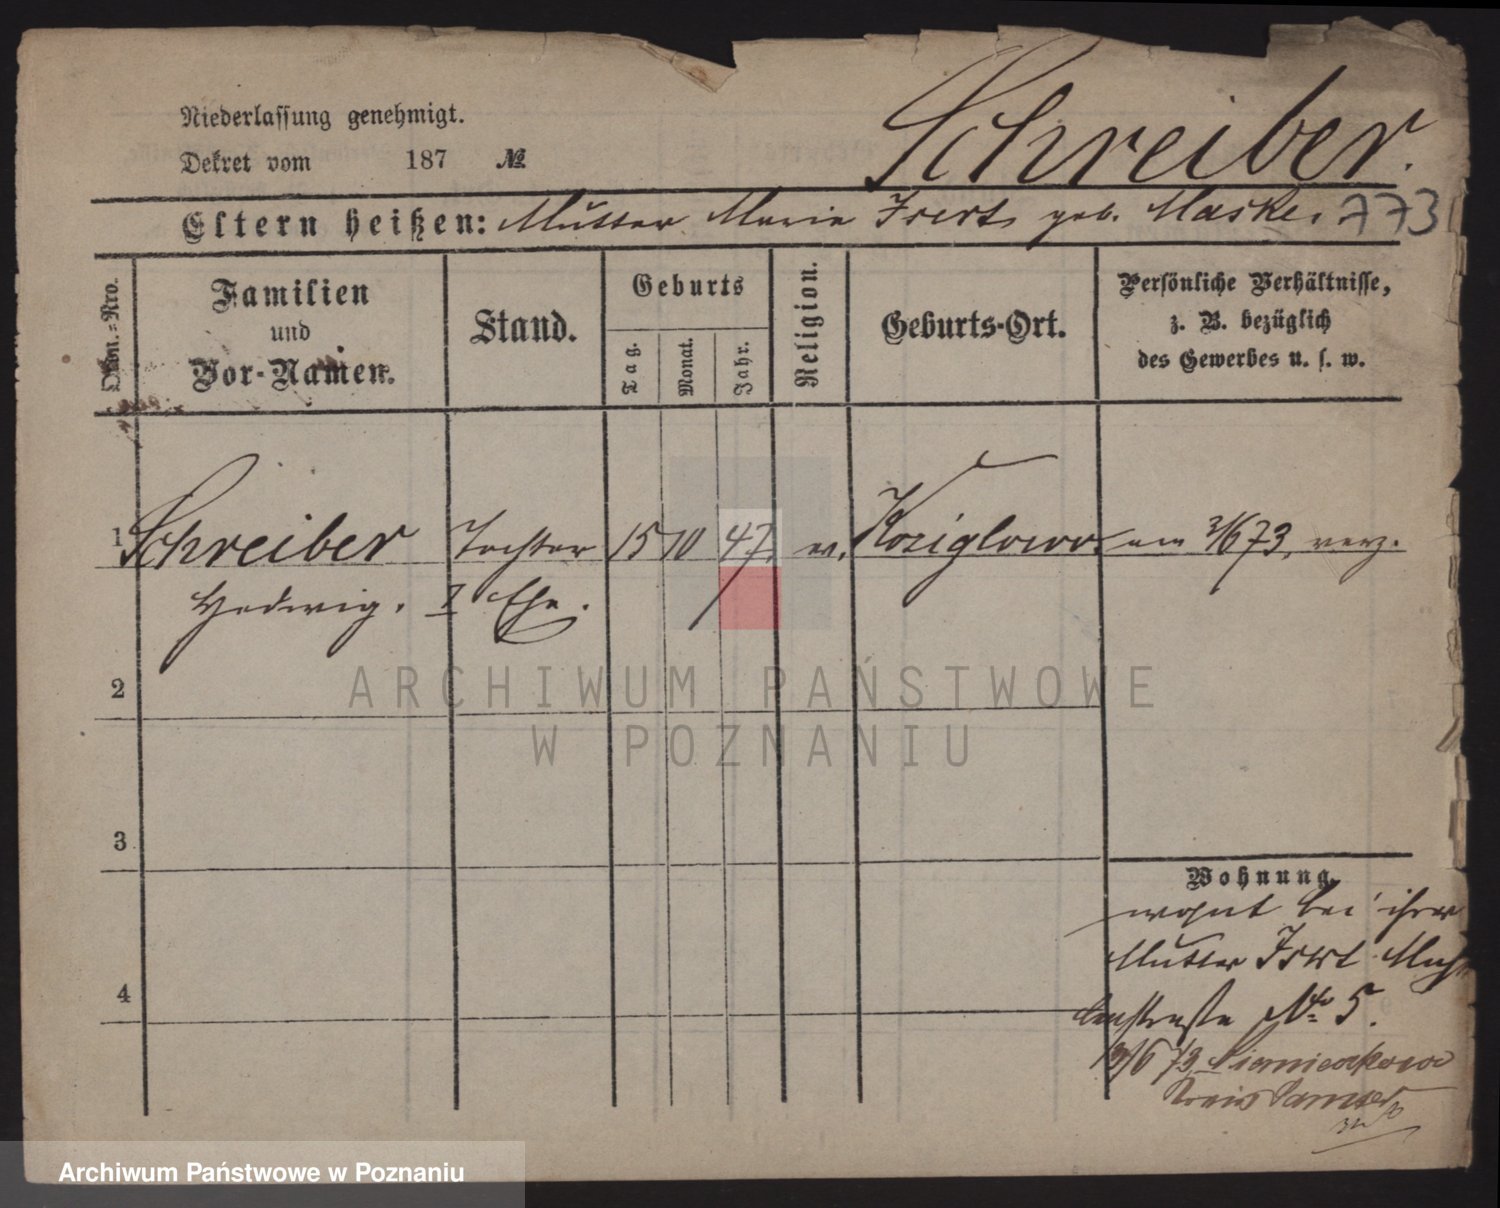 Niederlassung genehmigt.
Dekret vom 187 №
Schreiber.
Eltern heißen: Mutter Marie geb. Maske. 773
Obn.=Nro.
Familien
und
Vor-Namen.
Stand.
Geburts
Tag.
Monat.
Jahr.
Religion.
Geburts-Ort.
Persönliche Verhältnisse,
z. B. bezüglich
des Gewerbes u. s. w.
1 Schreiber Tochter 15 10 47. Koziglowo am 3/6 73,
Hedwig. Ehe.
2
3
4
Wohnung.
wohnt bei ihrer
Mutter
№ 5.
13/6 73,
Kreis Samter
ARCHIWUM PAŃSTWOWE
W POZNANIU
Archiwum Państwowe w Poznaniu